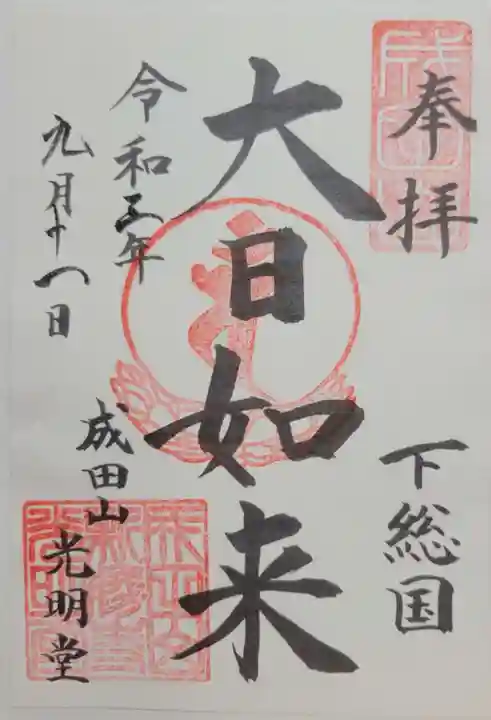 奉拝
下総国
大日如来
令和三年
九月十一日
成田山
光明堂